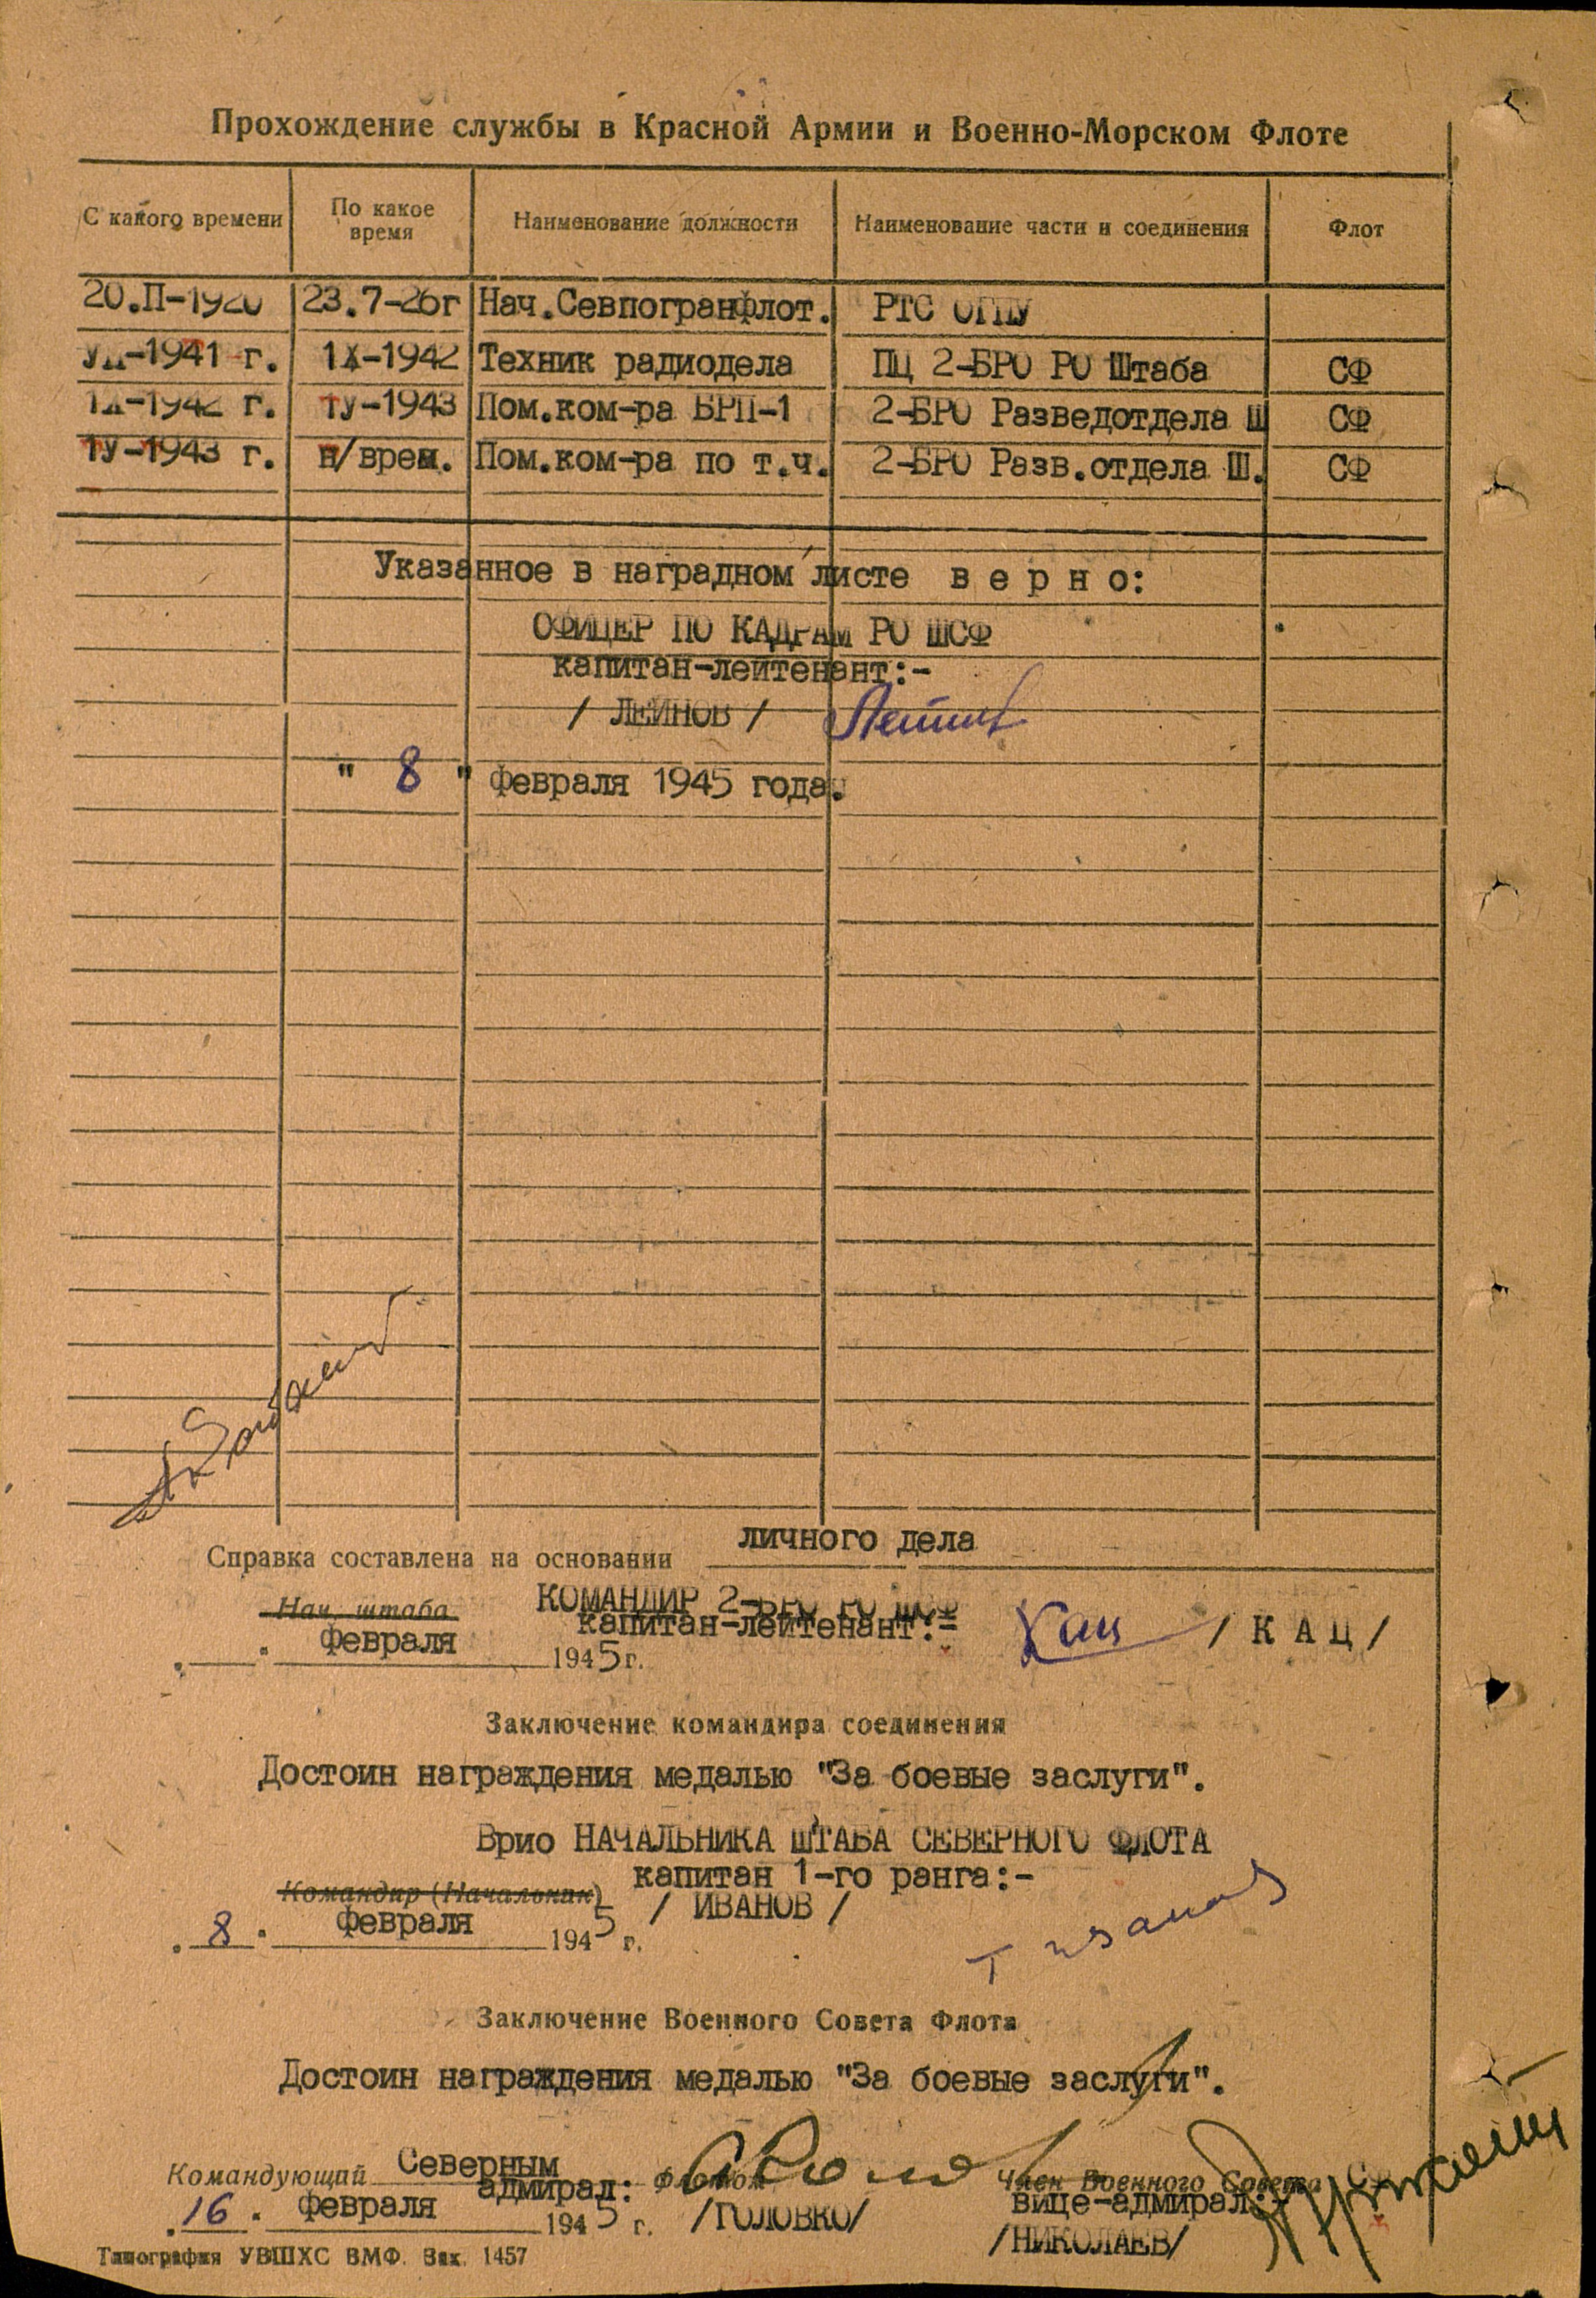 Прохождение службы в Красной Армии и Военно-Морском Флоте
С какого времени | По какое время | Наименование должности | Наименование части и соединения | Флот
20.П-1920 | 23.7-26г | Нач.Севпогранфлот. | РТС ОГПУ
-1941 г. | 1Х-1942 | Техник радиодела | ПЦ 2-БРО РО Штаба | СФ
1Х-1942 г. | 1У-1943 | Пом.ком-ра БРП-1 | 2-БРО Разведотдела Ш | СФ
1У-1943 г. | н/врем. | Пом.ком-ра по т.ч. | 2-БРО Разв.отдела Ш. | СФ
Указанное в наградном листе в е р н о:
ОФИЦЕР ПО КАДРАМ РО ШСФ
капитан-лейтенант:-
/ ЛЕЙНОВ /
" 8 " Февраля 1945 года.
Справка составлена на основании личного дела
Нач. штаба КОМАНДИР 2-БРО РО ШСФ
капитан-лейтенант:- Кац / К А Ц /
Февраля 1945 г.
Заключение командира соединения
Достоин награждения медалью "За боевые заслуги".
Врио НАЧАЛЬНИКА ШТАБА СЕВЕРНОГО ФЛОТА
капитан 1-го ранга:-
Командир (Начальник) / ИВАНОВ / Иванов
"8" Февраля 1945 г.
Заключение Военного Совета Флота
Достоин награждения медалью "За боевые заслуги".
Командующий Северным Флотом Член Военного Совета
адмирал: вице-адмирал:
"16" Февраля 1945 г. /ГОЛОВКО/ /НИКОЛАЕВ/
Типография УВШХС ВМФ. Зак. 1457